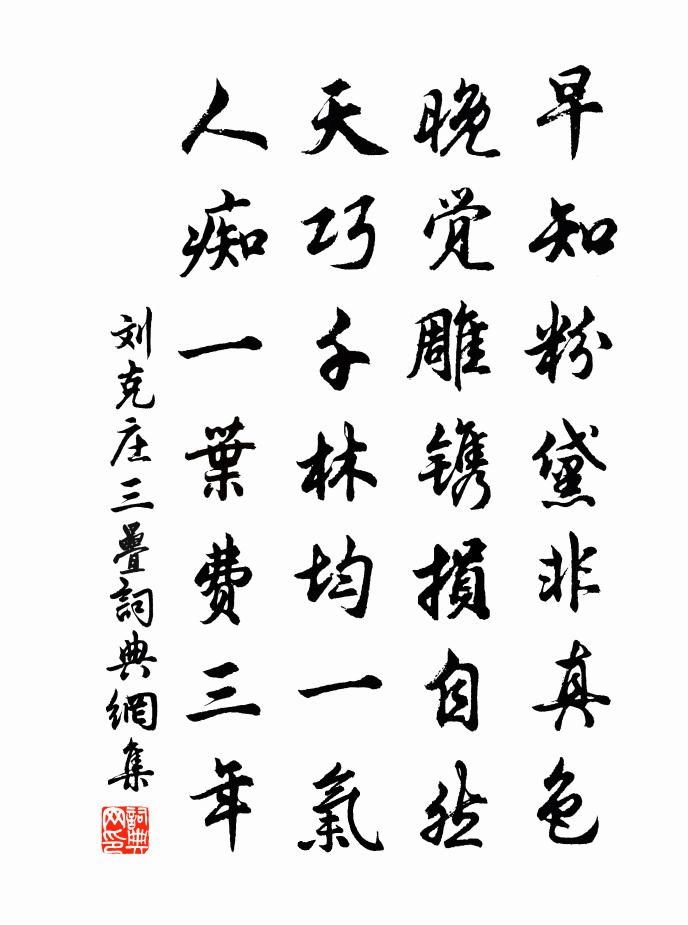 早知粉黛非真色
晚觉雕镌損自然
天巧千林均一氣
人痴一葉费三年
刘克庄三疊詞典網集
詞典网印